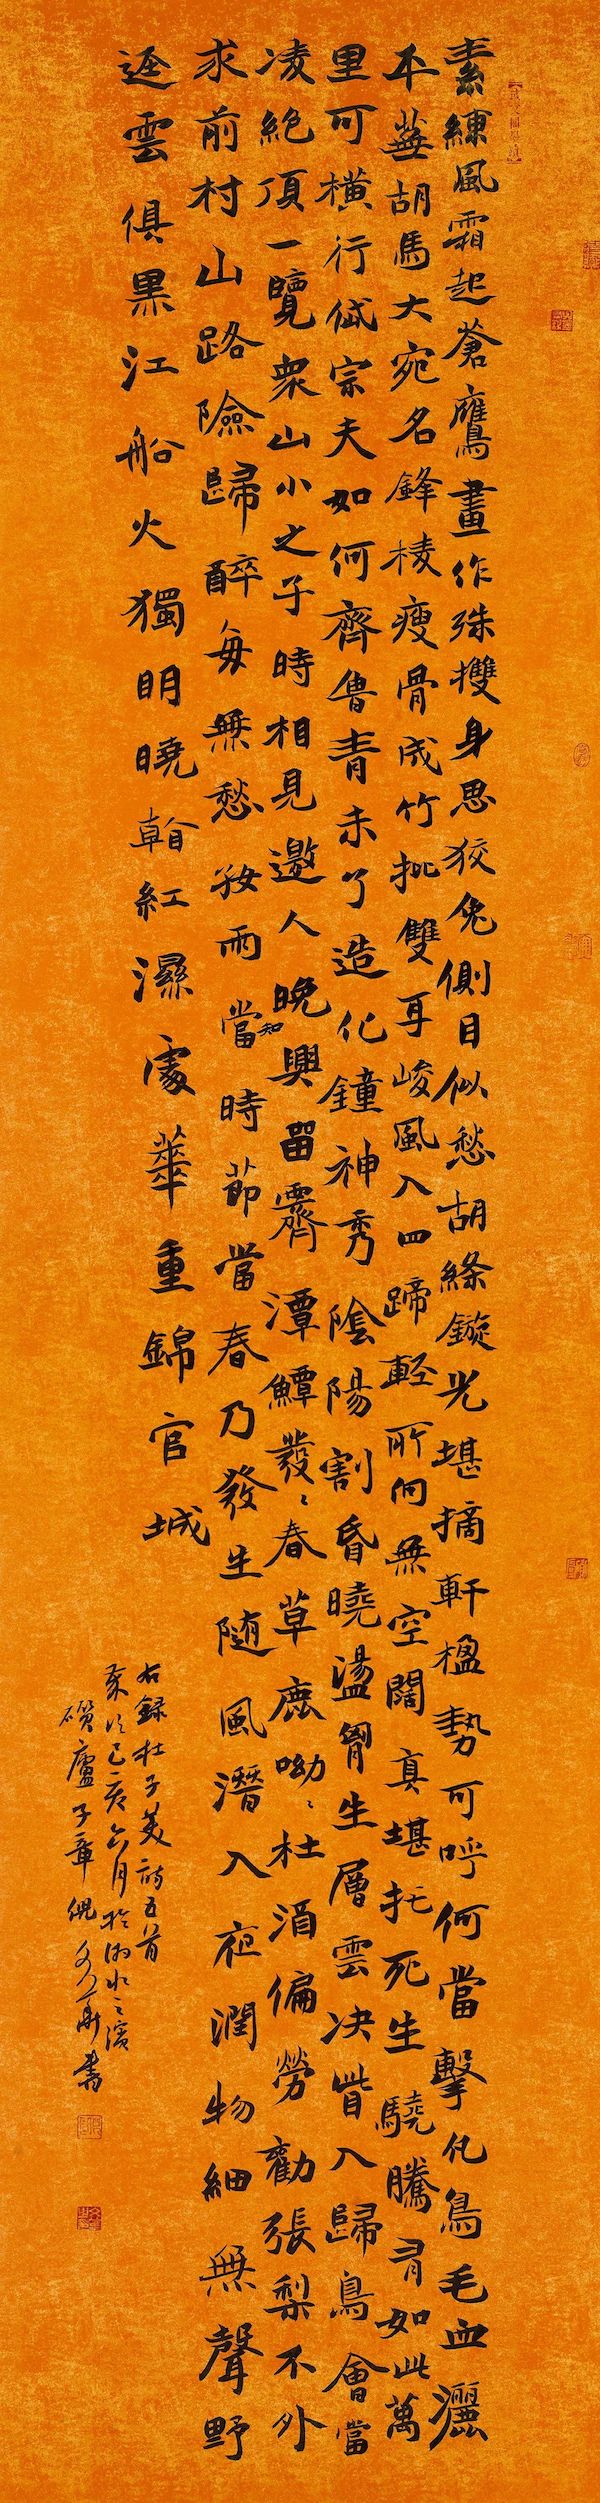 素練風霜起蒼鷹畫作殊㩳身思狡兔側目似愁胡絛鏇光堪摘軒楹勢可呼何當擊凡鳥毛血灑
平蕪胡馬大宛名鋒棱瘦骨成竹批雙耳峻風入四蹄輕所向無空闊真堪托死生驍騰有如此萬
里可橫行岱宗夫如何齊魯青未了造化鐘神秀陰陽割昏曉盪胷生層雲决眥入歸鳥會當
凌絕頂一覽衆山小之子時相見邀人晚興留霽潭鱣發〻春草鹿呦〻杜酒偏勞勸張梨不外
求前村山路險歸醉每無愁好雨當知時節當春乃發生隨風潛入夜潤物細無聲野
逕雲俱黑江船火獨明曉看紅濕處華重錦官城
右錄杜子美詩五首
歲次己亥六月於湘水之濱
廬子章倪華書